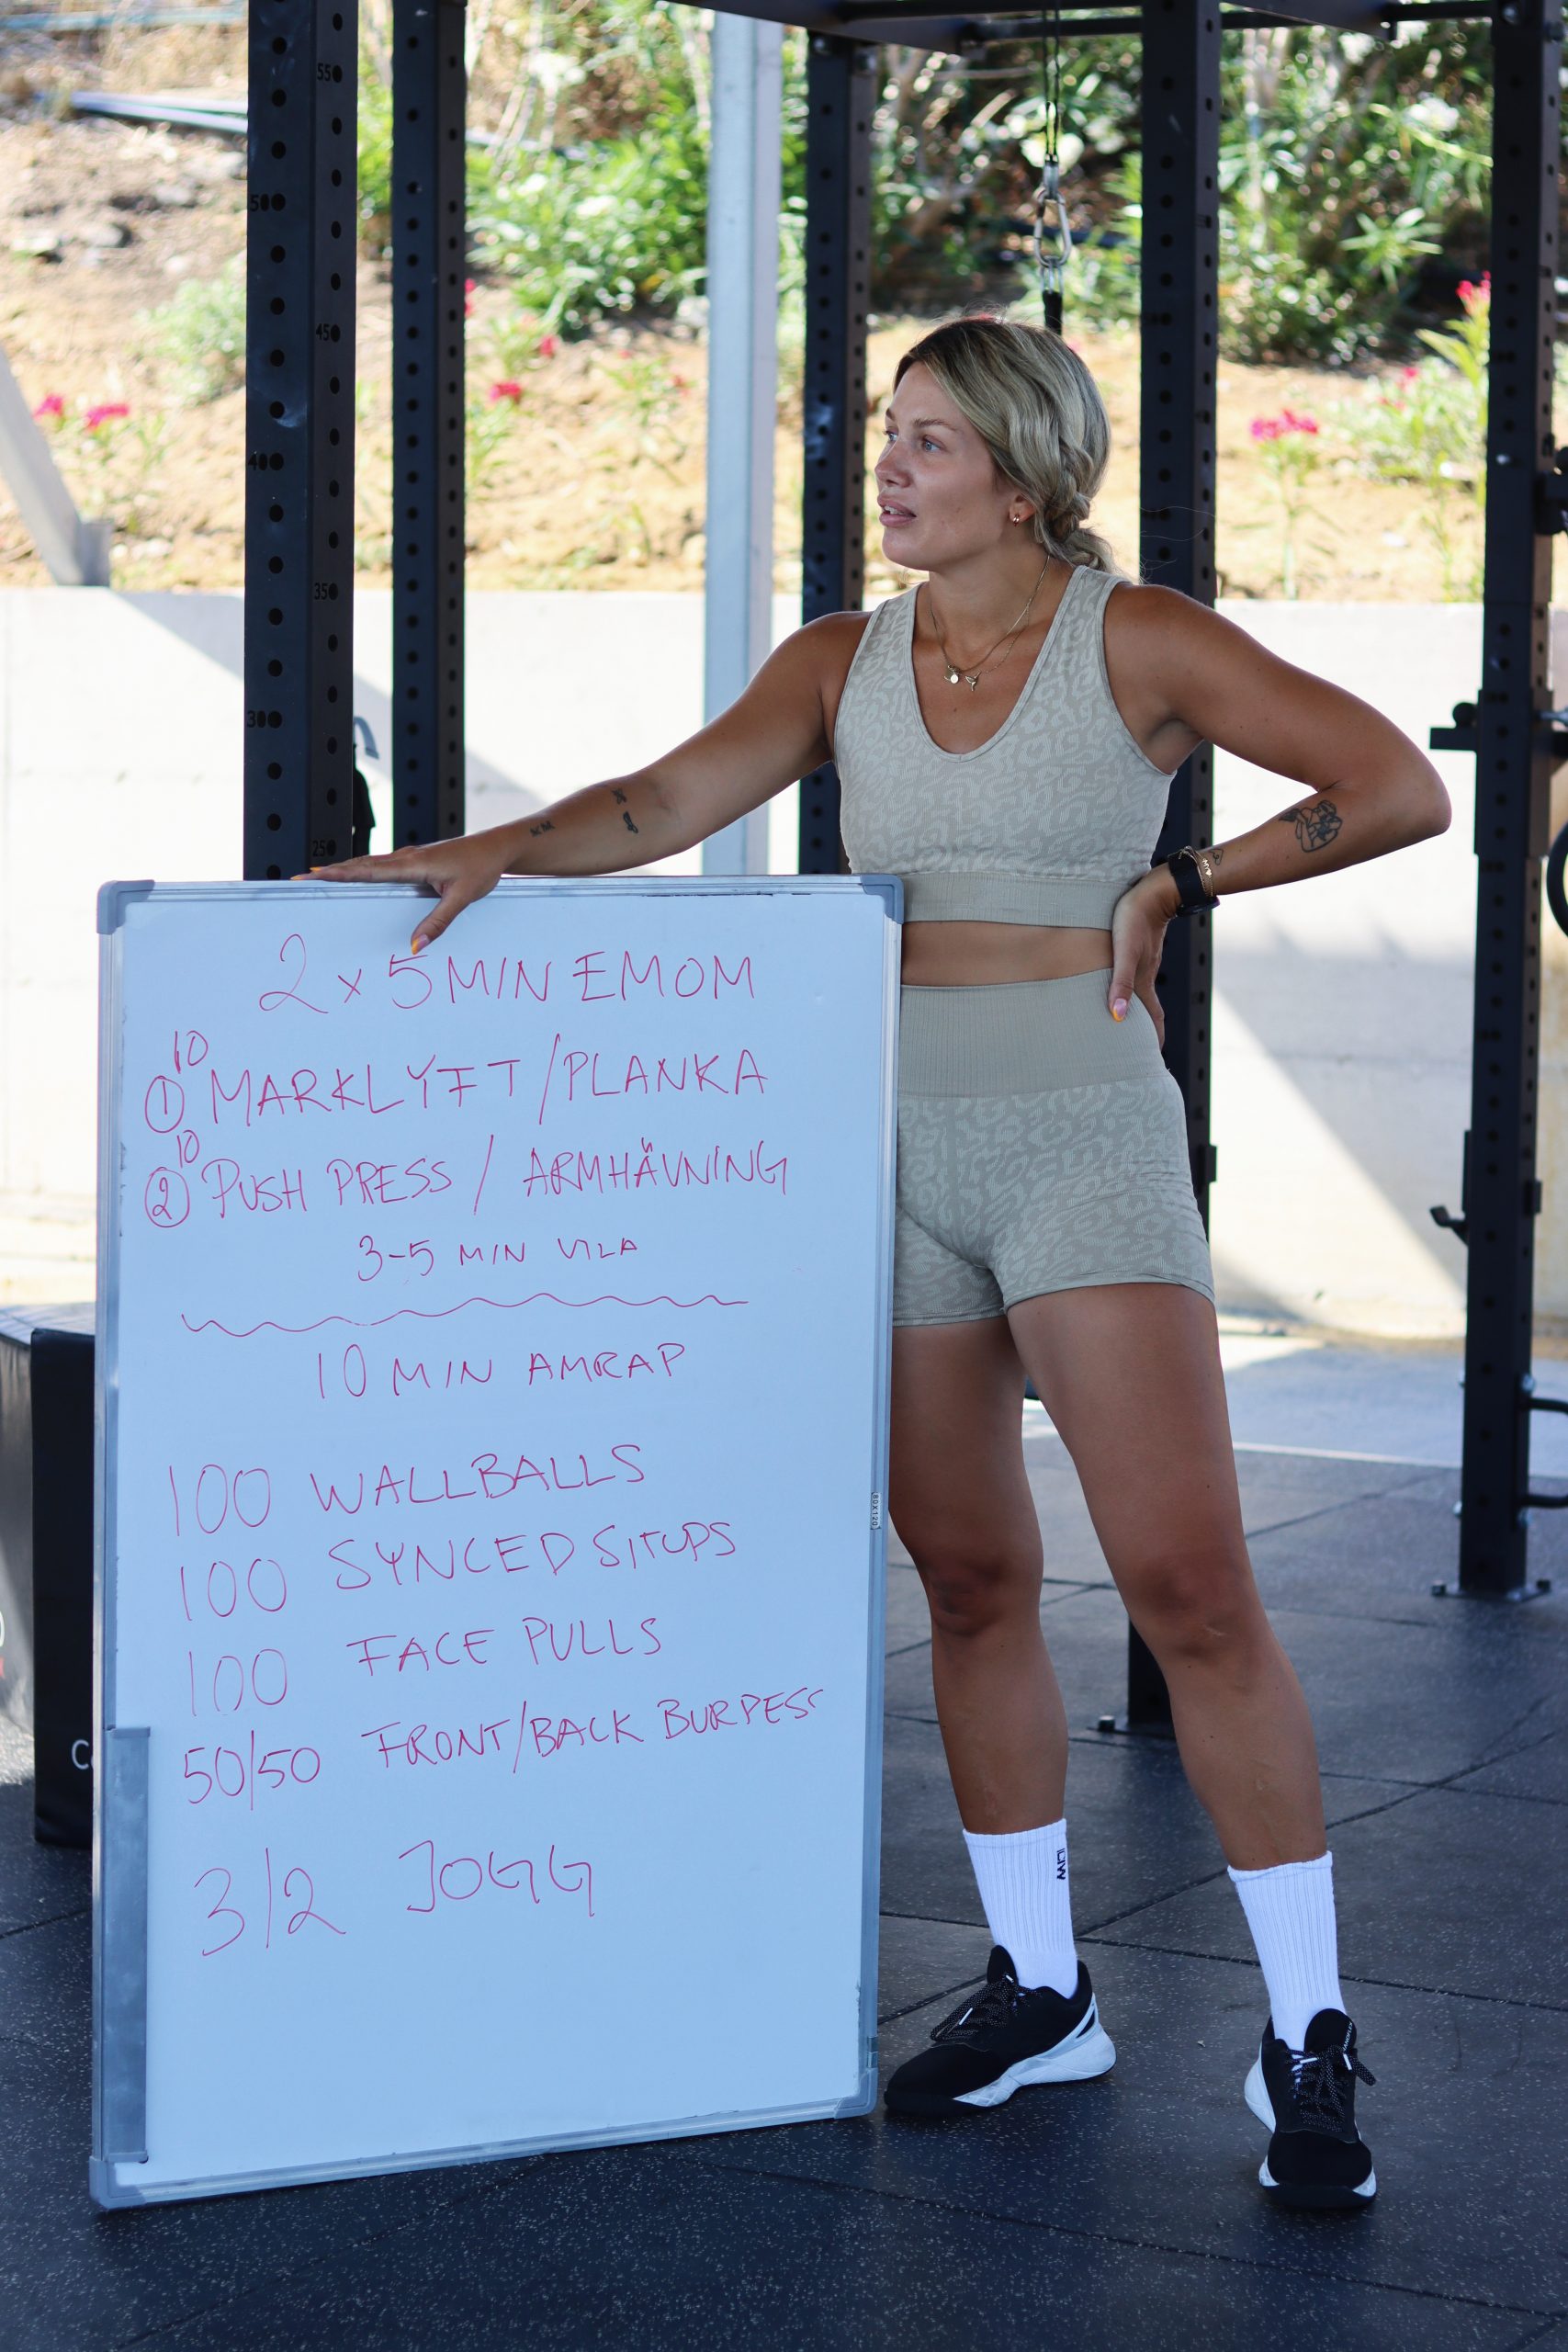 550
500
450
400
350
300
250
2 x 5 MIN EMOM
10
① MARKLYFT / PLANKA
10
② PUSH PRESS / ARMHÄVNING
3-5 MIN VILA
10 MIN AMRAP
100 WALLBALLS
100 SYNCED SITUPS
100 FACE PULLS
50/50 FRONT/BACK BURPEES
3/2 JOGG
80X120